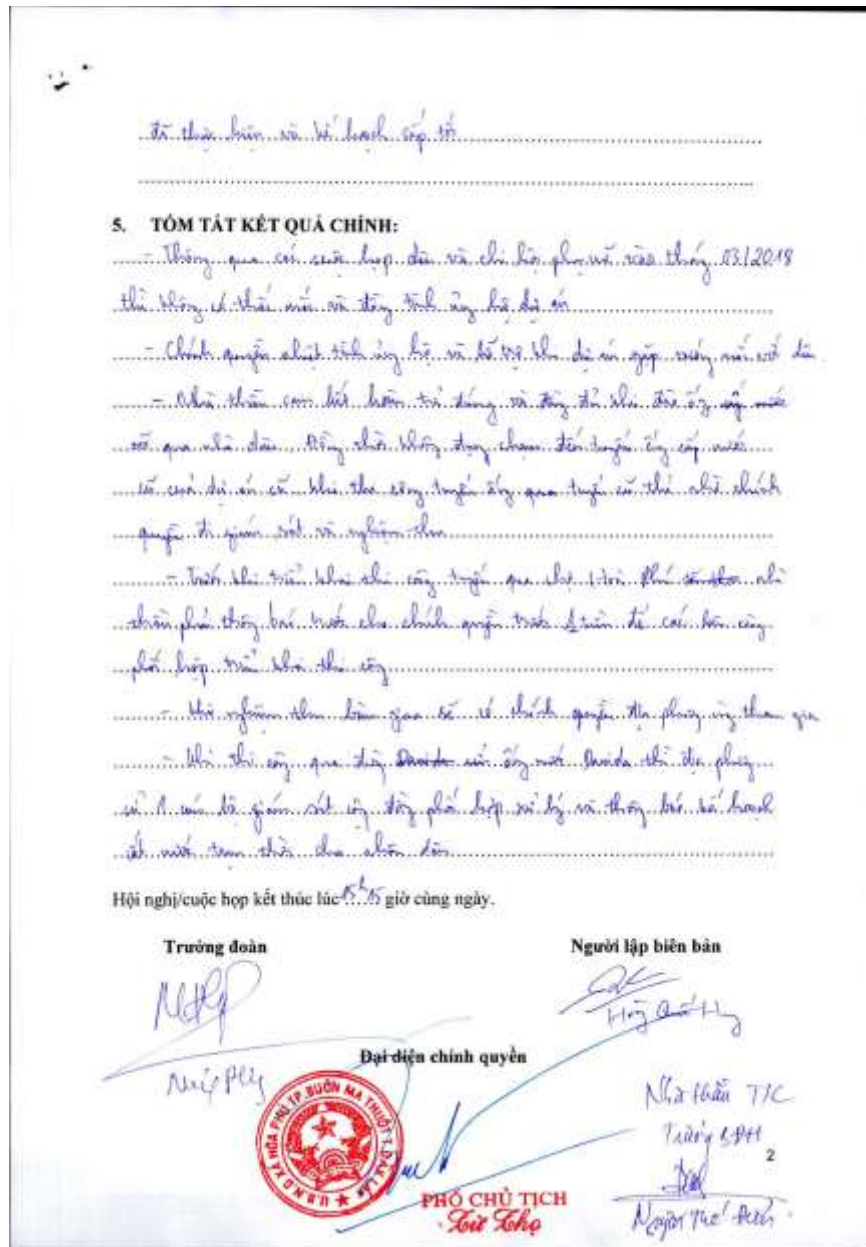 đã thực hiện và kế hoạch sắp tới
5. TÓM TẮT KẾT QUẢ CHÍNH:
- Thông qua các cuộc họp dân và chi hội phụ nữ vào tháng 03/2018
thì không có thắc mắc và đồng tình ủng hộ dự án
- Chính quyền nhiệt tình ủng hộ và hỗ trợ khi dự án gặp vướng mắc với dân
- Nhà thầu cam kết hoàn trả đúng và đầy đủ khi đào ống
qua nhà dân. Đồng thời không đụng chạm đến tuyến ống cấp nước
cũ của dự án cũ khi thi công tuyến ống qua tuyến cũ thì nhờ chính
quyền đi giám sát và nghiệm thu
- Trước khi triển khai thi công tuyến qua chợ Hoà Phú nhà
thầu phải thông báo trước cho chính quyền trước 1 tuần để các bên cùng
phối hợp triển khai thi công
- Khi nghiệm thu bàn giao sẽ có chính quyền địa phương cùng tham gia
- Khi thi công qua ống nước Davida thì địa phương
cử 1 cán bộ giám sát cộng đồng phối hợp xử lý và thông báo kế hoạch
cắt nước tạm thời cho nhân dân
Hội nghị/cuộc họp kết thúc lúc 15h15 giờ cùng ngày.
Trưởng đoàn
Người lập biên bản
Đại diện chính quyền
U.B.N.D XÃ HÒA PHÚ T.P BUÔN MA THUỘT T. ĐẮK LẮK
Nhà thầu T/C
2
PHÓ CHỦ TỊCH